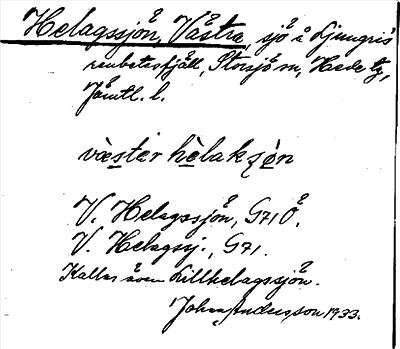 Helagssjön, Västra, sjö å Ljungris
renbetesfjäll, Storsjö sn, Hede tg,
Jämtl. l.
væster hèlaksjön
V. Helagssjön, G71 Ö.
V. Helagsj., G71.
Kallas även Lillhelagssjön.
Johan Andersson 1933.